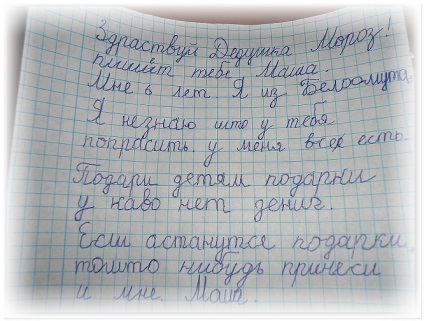 Здраствуй Дедушка Мороз!
пишет тебе Маша.
Мне 6 лет Я из Белоомута
Я незнаю што у тебя
попрасить у меня всё есть.
Подари детям подарки
у каво нет дениг.
Если астанутся подарки,
тошто нибудь принеси
и мне. Маша.